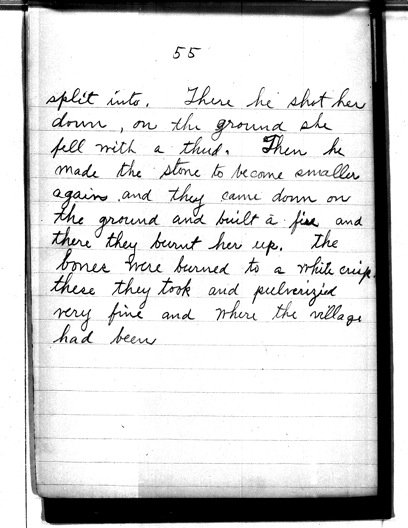 55
split into. There he shot her
down, on the ground she
fell with a thud. Then he
made the stone to become smaller
again and they came down on
the ground and built a fire and
there they burnt her up. The
bones were burned to a white crisp.
these they took and pulverizied
very fine and where the village
had been